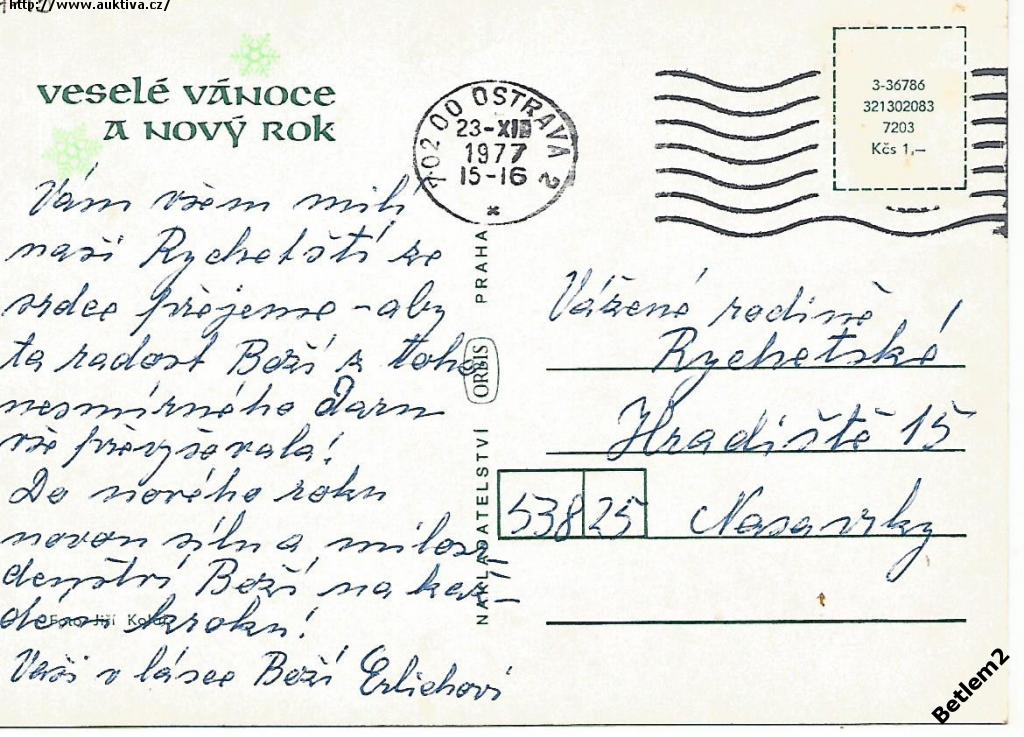 http://www.auktiva.cz/
veselé vánoce
a nový rok
Vám všem milí
naši Rychetští ze
srdce přejeme - aby
ta radost Boží z toho
nesmírného Daru
vše převyšovala!
Do nového roku
novou sílu a milosr-
denství Boží na kaž-
dém kroku!
Vaši v lásce Boží Erlichovi
Foto Jiří
702 00 OSTRAVA 2
23-XII
1977
15-16
*
NAKLADATELSTVÍ ORBIS PRAHA
3-36786
321302083
7203
Kčs 1,—
Vážené rodině,
Rychetské!
Hradiště 15
538 25 Nasavrky
Betlem2